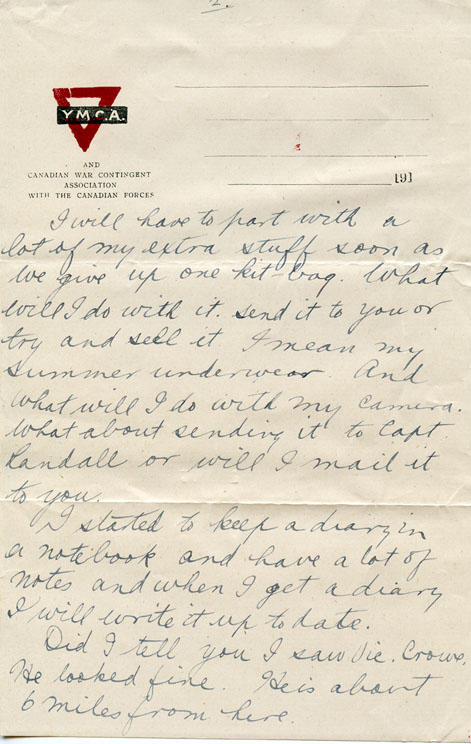 2.
Y.M.C.A.
AND
CANADIAN WAR CONTINGENT
ASSOCIATION
WITH THE CANADIAN FORCES
191
I will have to part with a
lot of my extra stuff soon as
we give up one kit-bag. What
will I do with it. send it to you or
try and sell it I mean my
summer underwear. And
what will I do with my camera.
What about sending it to Capt
Randall or will I mail it
to you.
I started to keep a diary in
a notebook and have a lot of
notes and when I get a diary
I will write it up to date.
Did I tell you I saw Vic. Crowe.
He looked fine. He is about
6 miles from here.